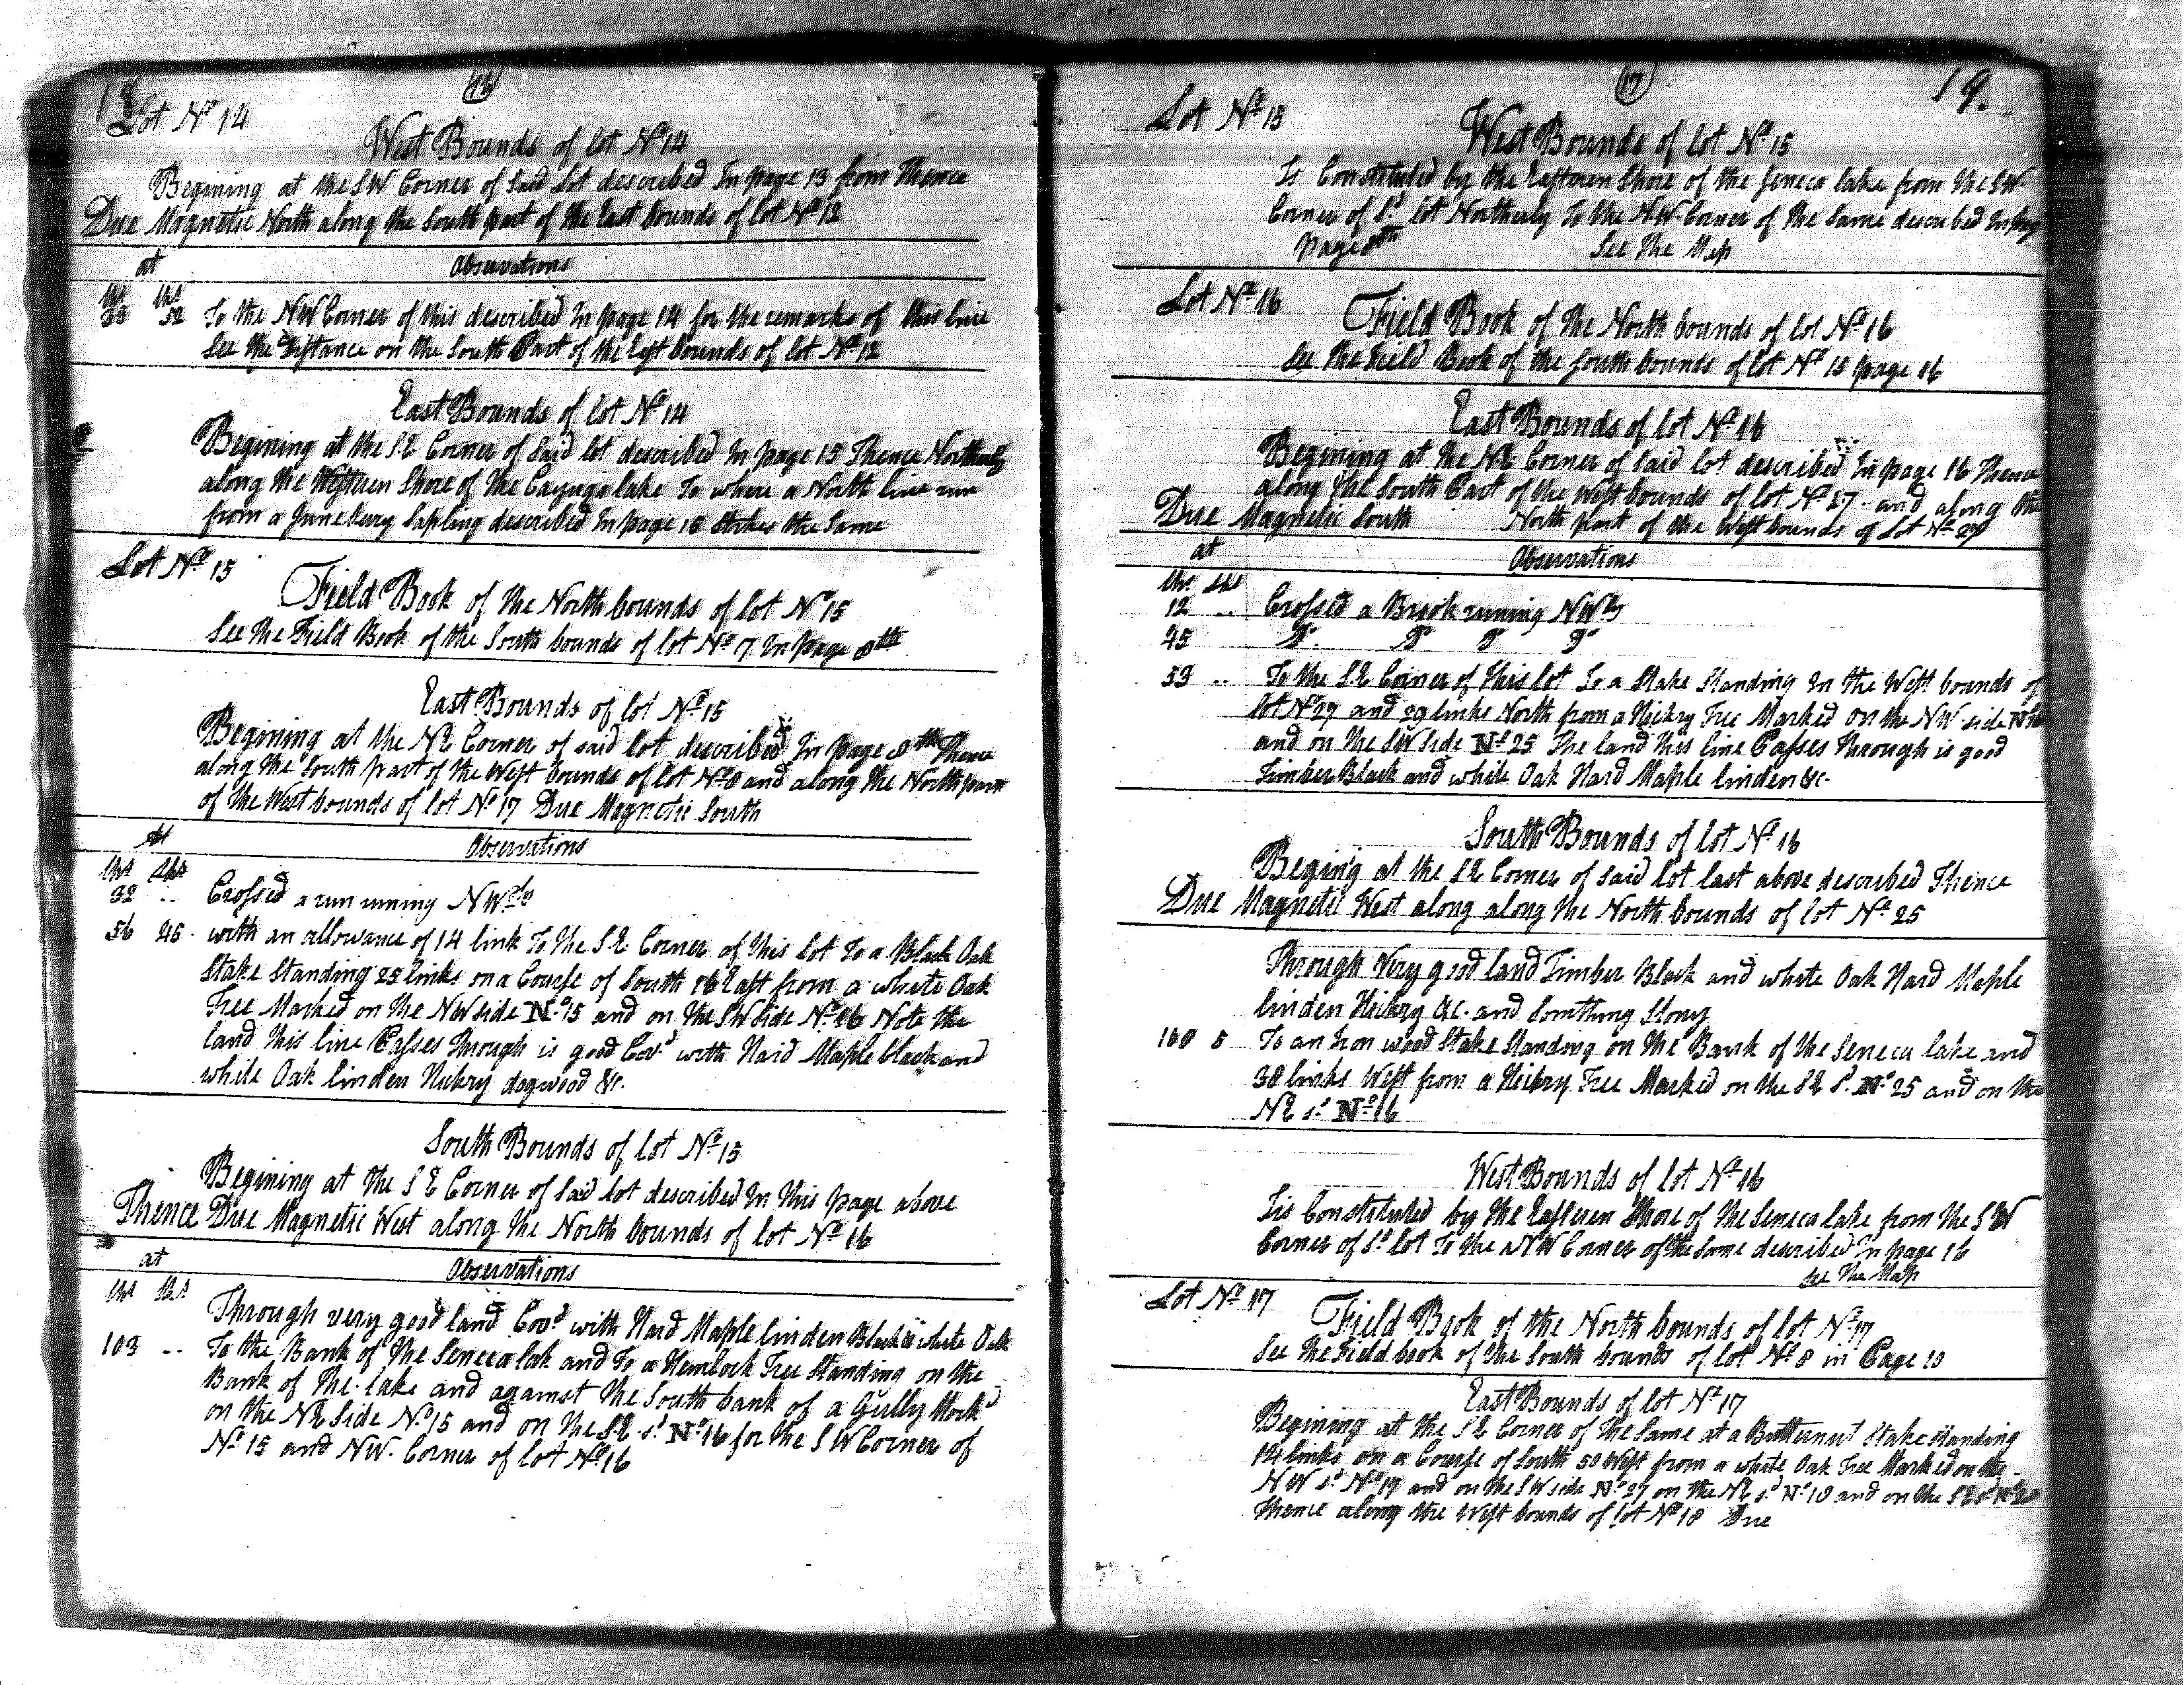 18
Lot Nº 14
West Bounds of lot Nº 14
Begining at the SW Corner of Said Lot described In page 13 from Thence
Due Magnetic North along the South part of the East bounds of lot Nº 12
at Observations
Chs Lks
To the NW Corner of this described In page 14 for the remarks of this line
See the Distance on the South Part of the East bounds of lot Nº 12
East Bounds of lot Nº 14
Begining at the SE Corner of Said lot described In page 15 Thence Northerly
along the Western Shore of the Cayuga lake To where a North line run
from a Juneberry Sapling described In page 15 Strikes the Same
Lot Nº 15
Field Book of the North bounds of lot Nº 15
See the Field Book of the South bounds of lot Nº 7 In page 8th
East Bounds of lot Nº 15
Begining at the NE Corner of said lot described In page 8th Thence
along the South part of the West bounds of lot Nº 8 and along the North part
of the West bounds of lot Nº 17 Due Magnetic South
At Observations
Chs Lks
32 .. Crossed a run runing NWly
56 45 with an allowance of 14 link To the SE Corner of this lot To a Black Oak
Stake Standing 25 links on a Course of South 16 East from a white Oak
Tree Marked on the NW side Nº 15 and on the SW Side Nº 16 Note the
land this line Passes Through is good Cov.d with Hard Maple black and
white Oak linden Hickry dogwood &c.
South Bounds of lot Nº 15
Begining at the SE Corner of Said lot described In this page above
Thence Due Magnetic West along the North bounds of lot Nº 16
at Observations
Chs Lks
Through very good land Cov.d with Hard Maple linden Black & white Oak
103 .. To the Bank of the Seneca lak and To a Hemlock Tree Standing on the
Bank of the lake and against the South bank of a Gully Mark'd
on the NE Side Nº 15 and on the SE s.d Nº 16 for the SW Corner of
Nº 15 and NW. Corner of lot Nº 16
17
19.
Lot Nº 15
West Bounds of lot Nº 15
Is Constituted by the Eastern Shore of the Seneca lake from the SW.
Corner of S.d lot Northerly To the NW. Corner of the Same described In
page 8th See the Map
Lot Nº 16
Field Book of the North bounds of lot Nº 16
See the Field Book of the South bounds of lot Nº 15 page 16
East Bounds of lot Nº 16
Begining at the NE Corner of Said lot described In page 16 Thence
along the South Part of the West bounds of lot Nº 17 and along the
Due Magnetic South North part of the West bounds of Lot Nº 27
at Observations
Chs Lks
12 .. Crossed a Brook runing NWly
45 Dº. Dº Dº Dº
53 .. To the SE Corner of this lot To a Stake Standing In the West bounds of
lot Nº 27 and 29 links North from a Hickry Tree Marked on the NW. side Nº 16
and on the SW Side Nº 25 The land this line Passes through is good
Timber Black and white Oak Hard Maple linden &c.
South Bounds of lot Nº 16
Begin'g at the SE Corner of Said lot last above described Thence
Due Magnetic West along along the North bounds of lot Nº 25
Through Very good land Timber Black and white Oak Hard Maple
linden Hickry &c. and Somthing Stony
100 5 To an Iron wood Stake Standing on the Bank of the Seneca lake and
30 links West from a Hickry Tree Marked on the SE S.d Nº 25 and on the
NE s.d Nº 16
West Bounds of lot Nº 16
Tis Constituted by the Eastern Shore of the Seneca lake from the SW
Corner of S.d lot To the NW Corner of the Same described In page 16
See the Map
Lot Nº 17
Field Book of the North bounds of lot Nº 17
See the Field book of the South bounds of lot Nº 8 in Page 10
East Bounds of lot Nº 17
Begining at the SE Corner of the Same at a Butternut Stake standing
links on a Course of South 50 West from a white Oak Tree Marked on the
NW s.d Nº 17 and on the SW side Nº 27 on the NE s.d Nº 18 and on the SE s.d
Thence along the West bounds of lot Nº 18 Due